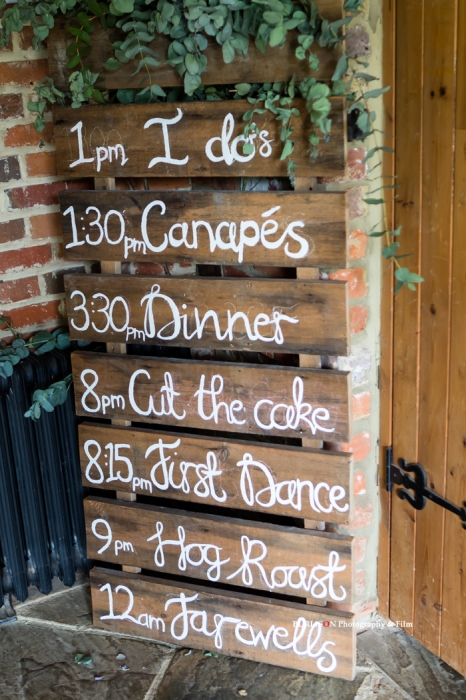 1pm I do's
1:30pm Canapés
3:30pm Dinner
8pm Cut the cake
8:15pm First Dance
9pm Hog Roast
12am Farewells
Photography & Film